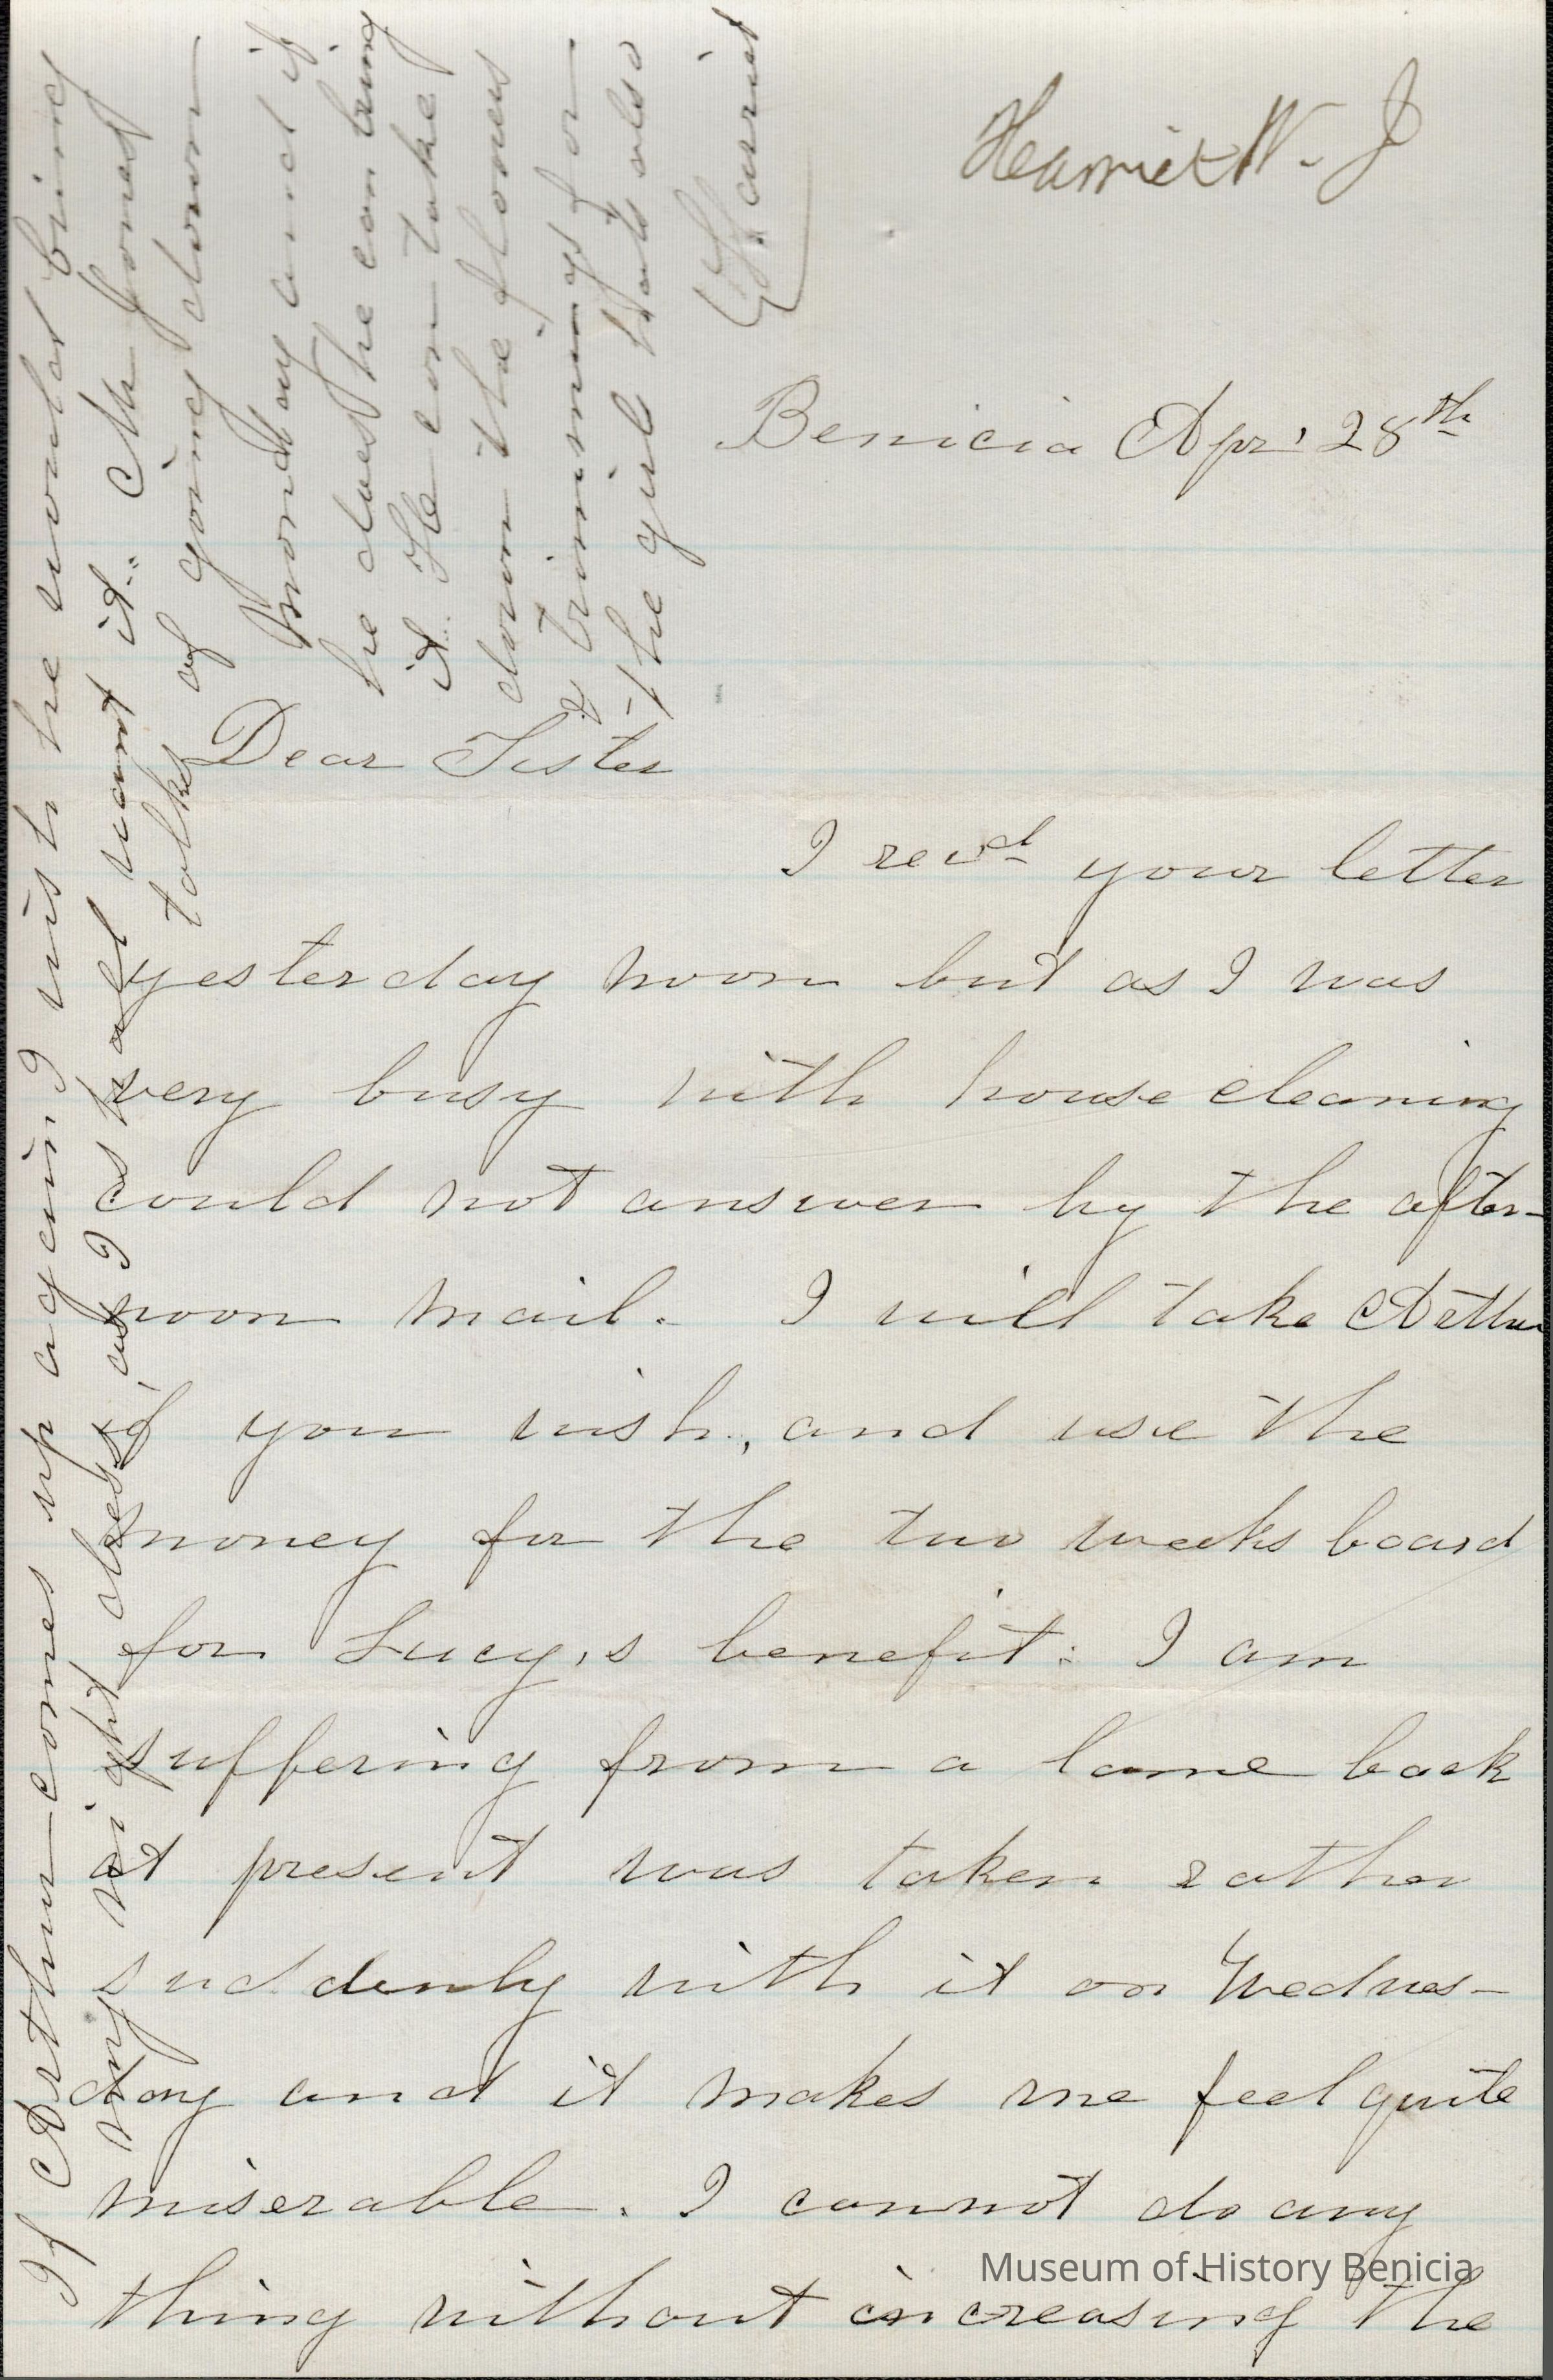 Harriet W. J
Benicia Apr, 28th
Dear Sister
I recvd your letter
yesterday noon but as I was
very busy with house cleaning
could not answer by the after-
noon mail. I will take Arthur
if you wish, and use the
money for the two weeks board
for Lucy,s benefit: I am
suffering from a lame back
at present was taken rather
suddenly with it on Wednes-
day and it makes me feel quite
miserable. I cannot do any
thing without increasing the
If Arthur comes up again I wish he would bring
my night dress as I shall want it. Mr Jones
talks of going down
Monday and if
he does he can bring
it. He can take
down the flowers
& trimmings for
the girls hats also
Harriet
Museum of History Benicia